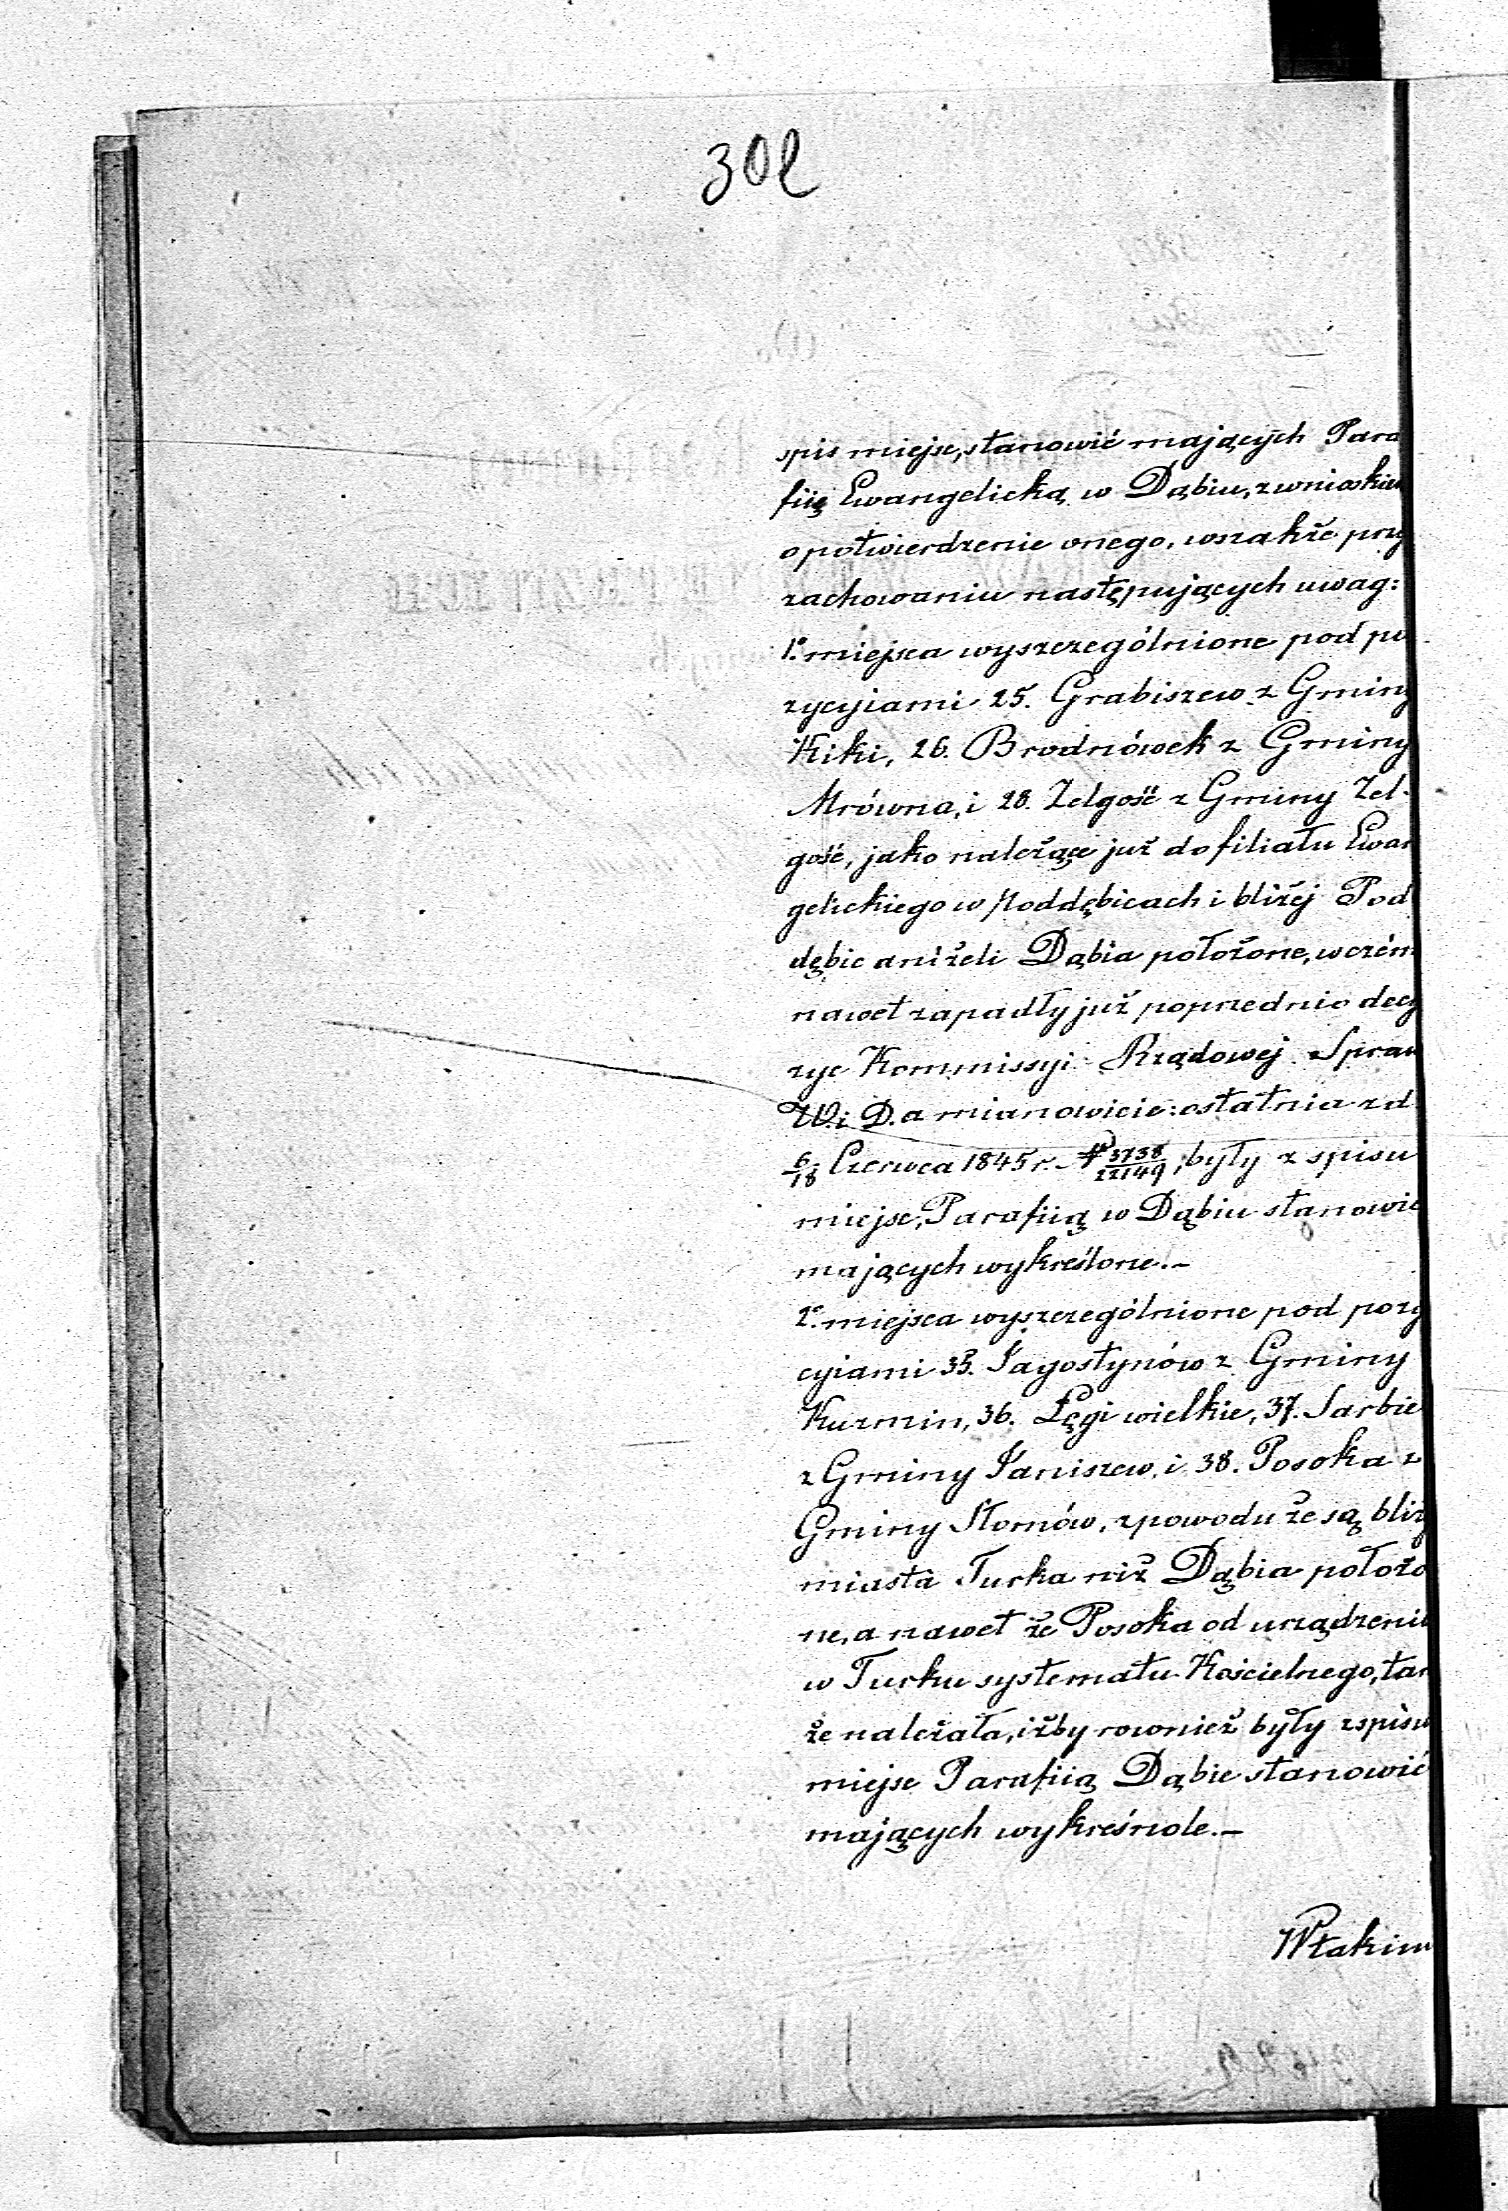 302
spis miejsc, stanowić mających Para
fiię Ewangelicką w Dąbiu, z wnioskiem
o potwierdzenie onego, wszakże przy
zachowaniu następujących uwag:
1o. miejsca wyszczególnione pod po
zycyiami 25. Grabiszew z Gminy
Kiki, 26. Brodnówek z Gminy
Mrówna, i 28. Zelgość z Gminy Zel-
gość, jako należące już do filiału Ewan
gelickiego w Poddębicach i bliżej Pod
dębic aniżeli Dąbia położone, w czém
nawet zapadły już poprzednio decy
zye Kommissyi Rządowej Spraw
W. i D. a mianowicie: ostatnia z d.
6/18 Czerwca 1845 r. No 3738/22149, były z spisu
miejsc, Parafiią w Dąbiu stanowić
mających wykreślone.-
2o. miejsca wyszczególnione pod pozy
cyiami 35. Jagostynów z Gminy
Kuzmin, 36. Łęgi wielkie, 37. Sarbie
z Gminy Janiszew, i 38. Posoka z
Gminy Słomów, z powodu że są bliżej
miasta Turka niż Dąbia położo
ne, a nawet że Posoka od urządzenia
w Turku systematu Kościelnego, tam
że należała, iżby rownież były z spisu
miejsc Parafiią Dąbie stanowić
mających wykreśnole.-
W takim